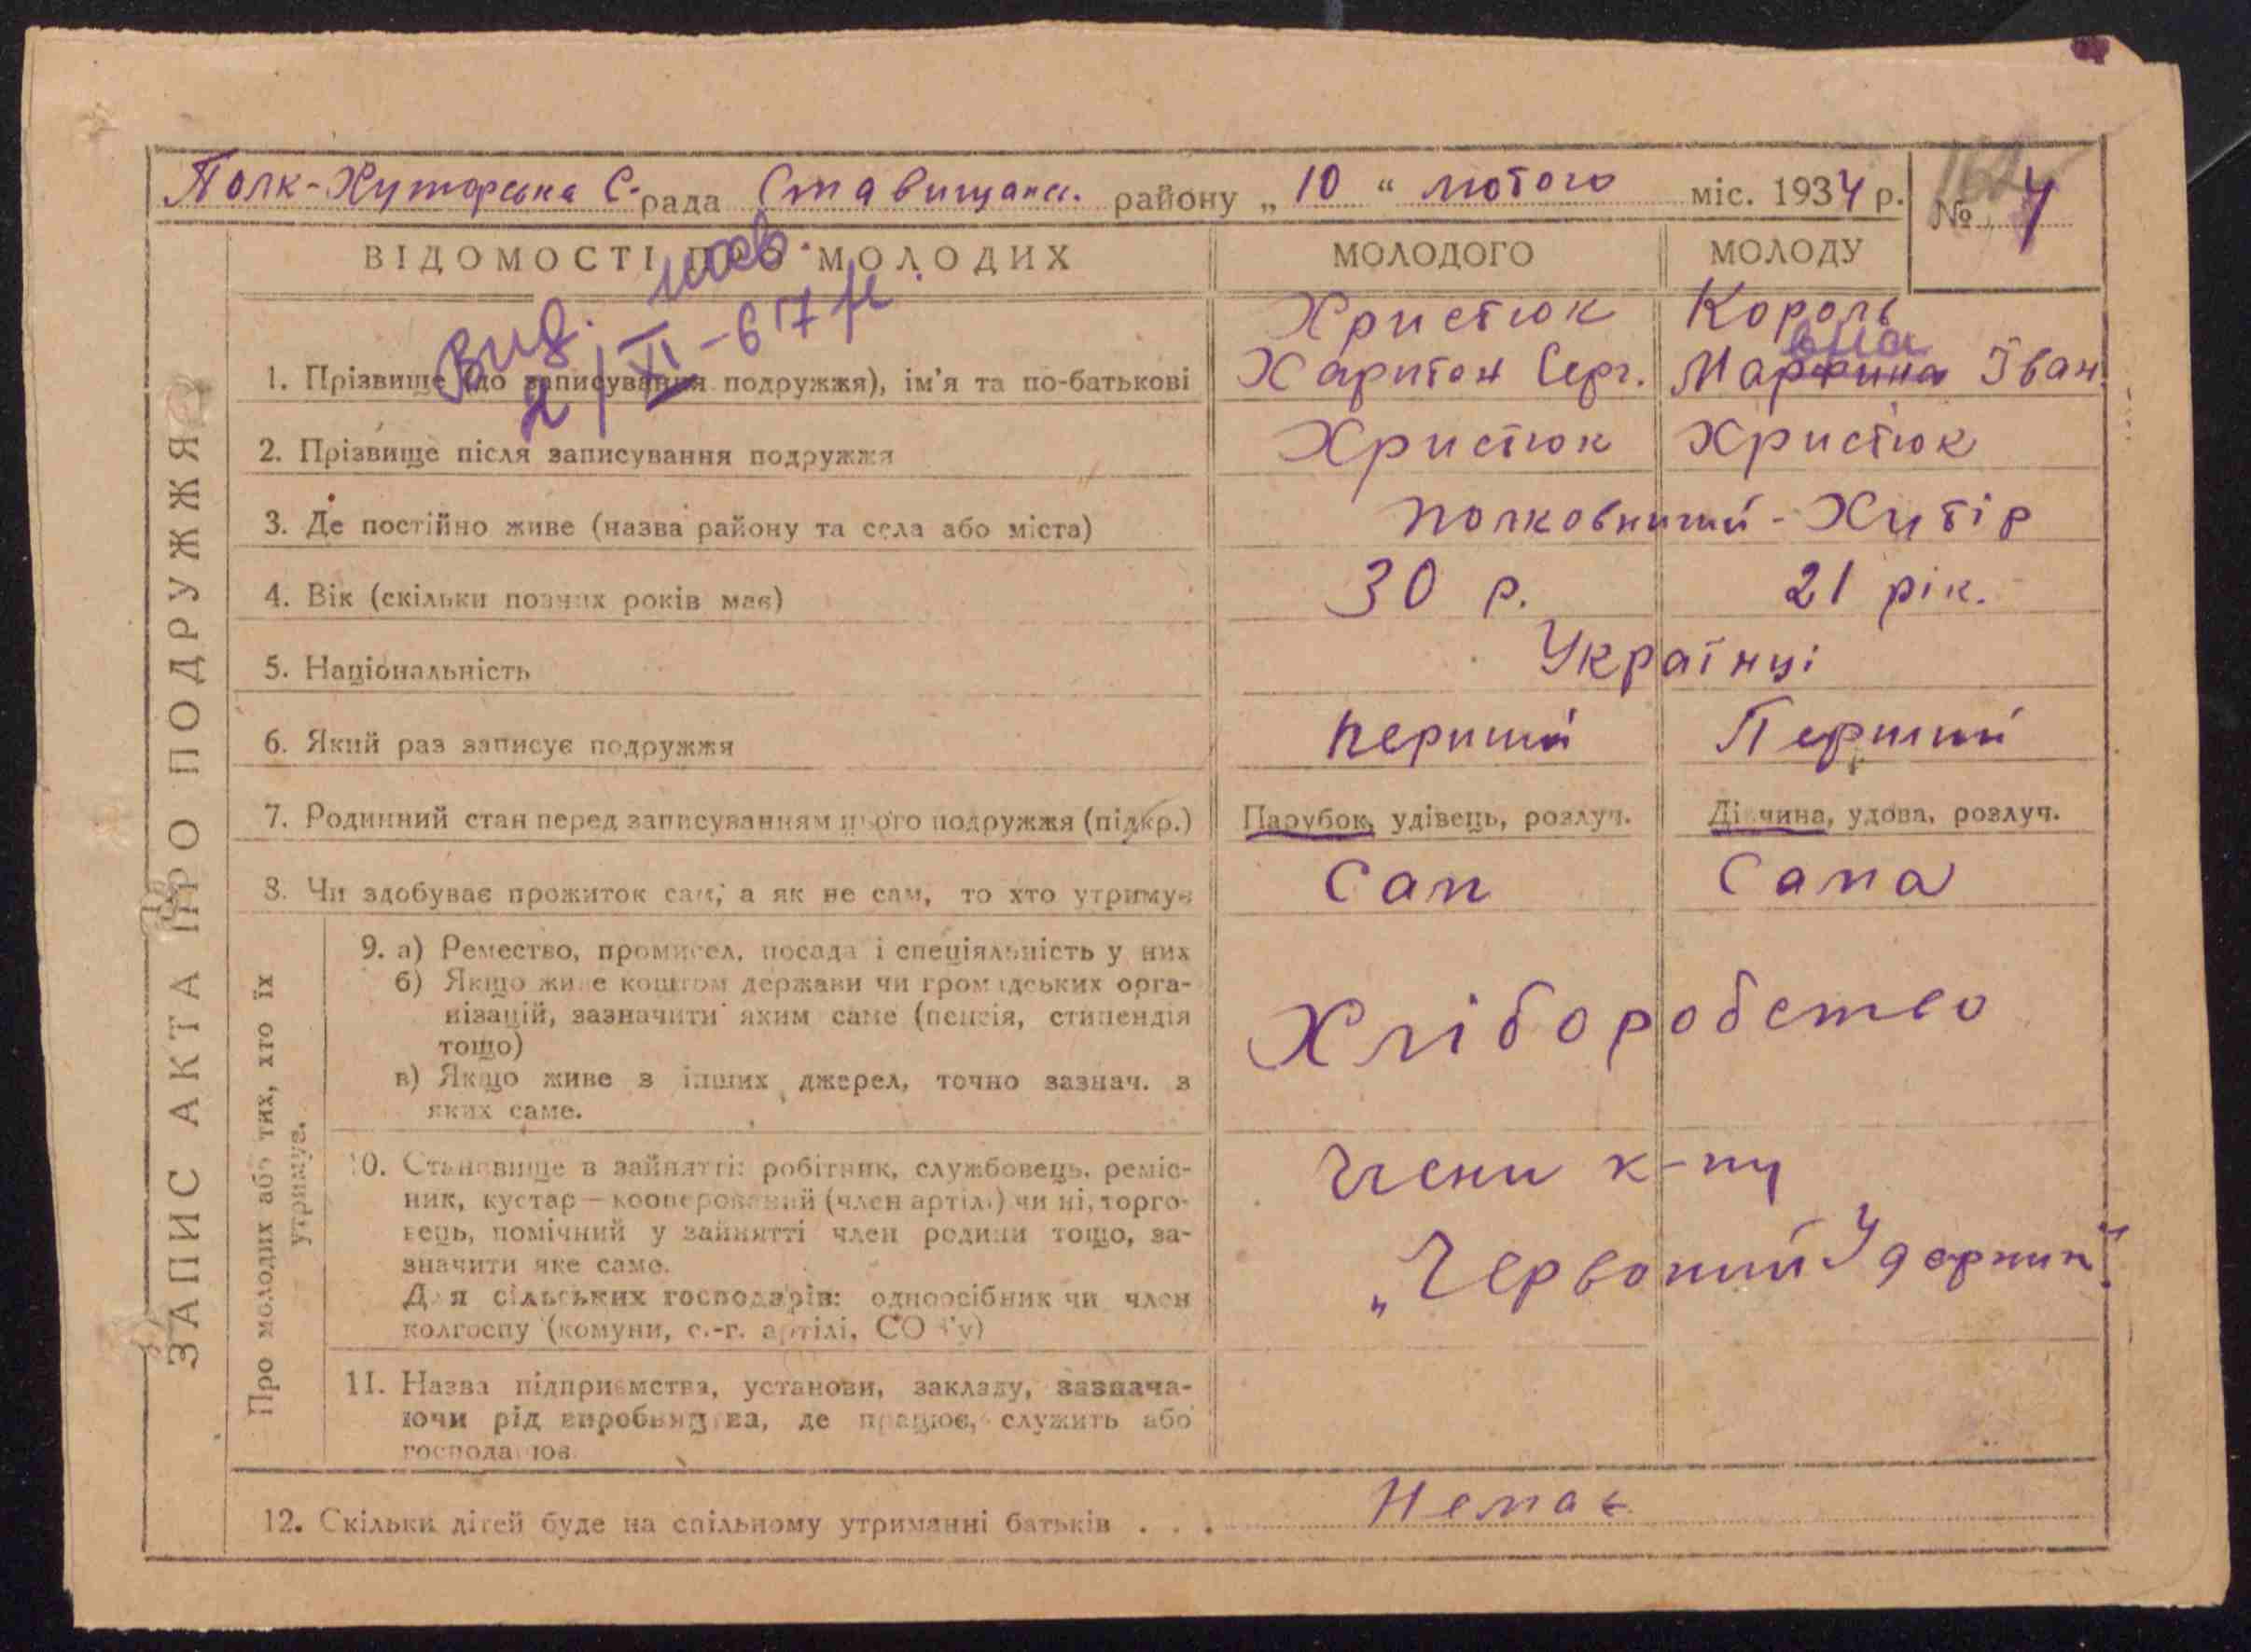 Полк-Хуторська С-рада Ставищанс. району „10“ лютого міс. 1934 р. № 4
ВІДОМОСТІ ПРО МОЛОДИХ МОЛОДОГО МОЛОДУ
Вид. нов.
2/XI-67 р.
Христюк Король
вна
1. Прізвище (до записування подружжя), ім’я та по-батькові Харитон Серг. Марфина Іван.
2. Прізвище після записування подружжя Христюк Христюк
3. Де постійно живе (назва району та села або міста) Полковничий-Хутір
4. Вік (скільки повних років має) 30 р. 21 рік.
5. Національність Українці
6. Який раз записує подружжя перший Перший
7. Родинний стан перед записуванням цього подружжя (підкр.) Парубок, удівець, розлуч. Дівчина, удова, розлуч.
8. Чи здобуває прожиток сам, а як не сам, то хто утримує Сам Сама
9. а) Ремество, промисел, посада і спеціяльність у них
б) Якщо живе коштом держави чи громадських орга-
нізацій, зазначити яким саме (пенсія, стипендія
тощо)
в) Якщо живе з інших джерел, точно зазнач. з
яких саме.
Хліборобство
10. Становище в зайнятті: робітник, службовець, реміс-
ник, кустар — кооперований (член артілі) чи ні, торго-
вець, помічний у зайнятті член родини тощо, за-
значити яке саме.
Для сільських господарів: одноосібник чи член
колгоспу (комуни, с.-г. артілі, СОЗ’у)
Члени к-пу
„Червоний Ударник“
11. Назва підприємства, установи, закладу, зазнача-
ючи рід виробництва, де працює, служить або
господарює
12. Скільки дітей буде на спільному утриманні батьків . . . Немає
ЗАПИС АКТА ПРО ПОДРУЖЖЯ
Про молодих або тих, хто їх
утримує.